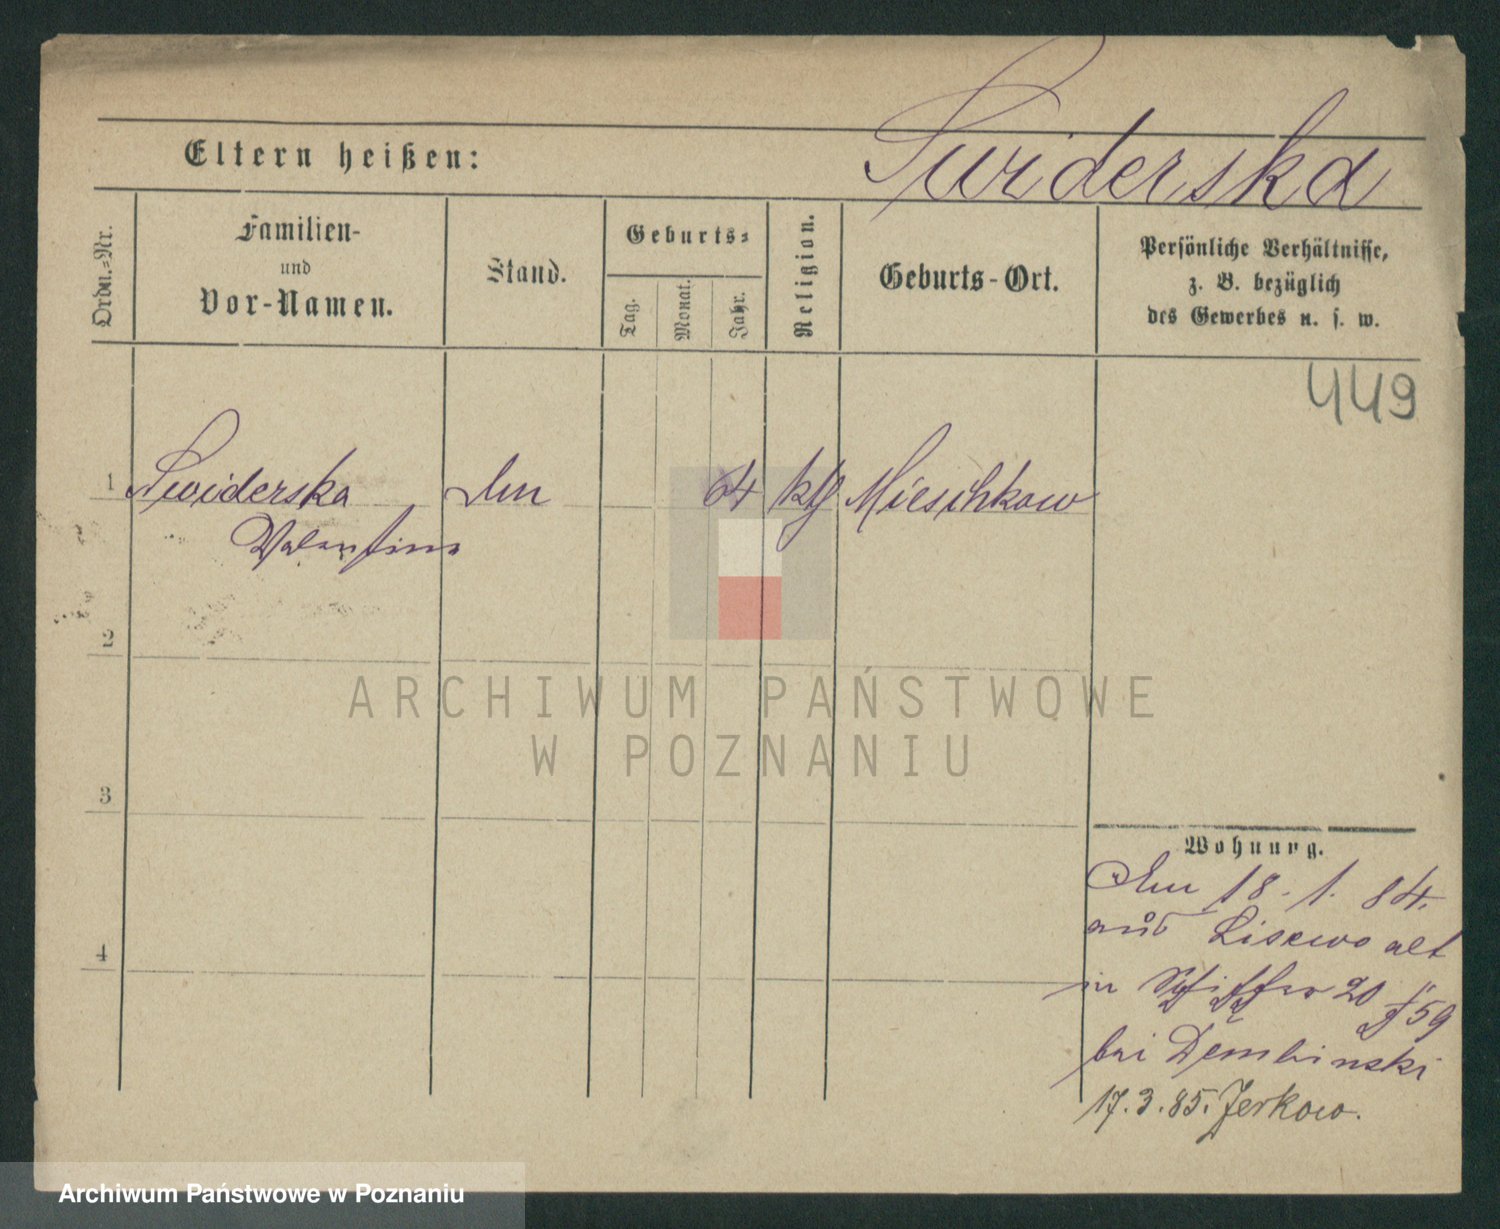 Swiderska
Eltern heißen:
Ordn.-Nr.
Familien-
und
Vor-Namen.
Stand.
Geburts-
Tag.
Monat.
Jahr.
Religion.
Geburts-Ort.
Persönliche Verhältnisse,
z. B. bezüglich
des Gewerbes u. s. w.
449
1 Swiderska 64 kth Mieschkow
Valentina
2
ARCHIWUM PAŃSTWOWE
W POZNANIU
3
Wohnung.
18. 1. 84.
aus Lisewo alt
4
in 20 59
bei Dembinski
17. 3. 85. Jerkowo.
Archiwum Państwowe w Poznaniu